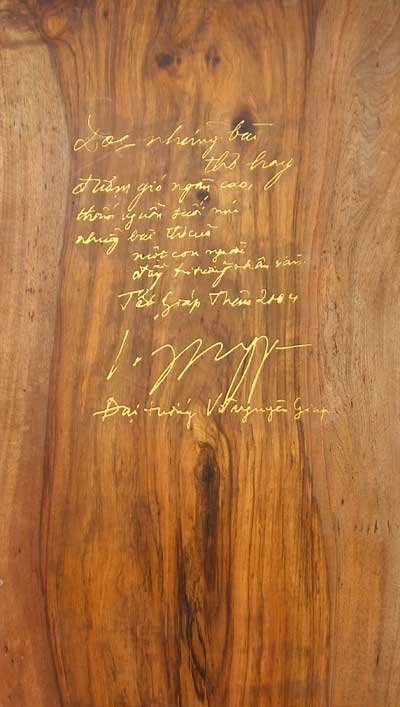 Đọc những bài
thơ hay
đượm gió ngàn cao,
nguồn suối
những bài thơ của
một con người
đầy tư tưởng nhân văn.
Tết Giáp Thân 2004
Đại tướng Võ Nguyên Giáp